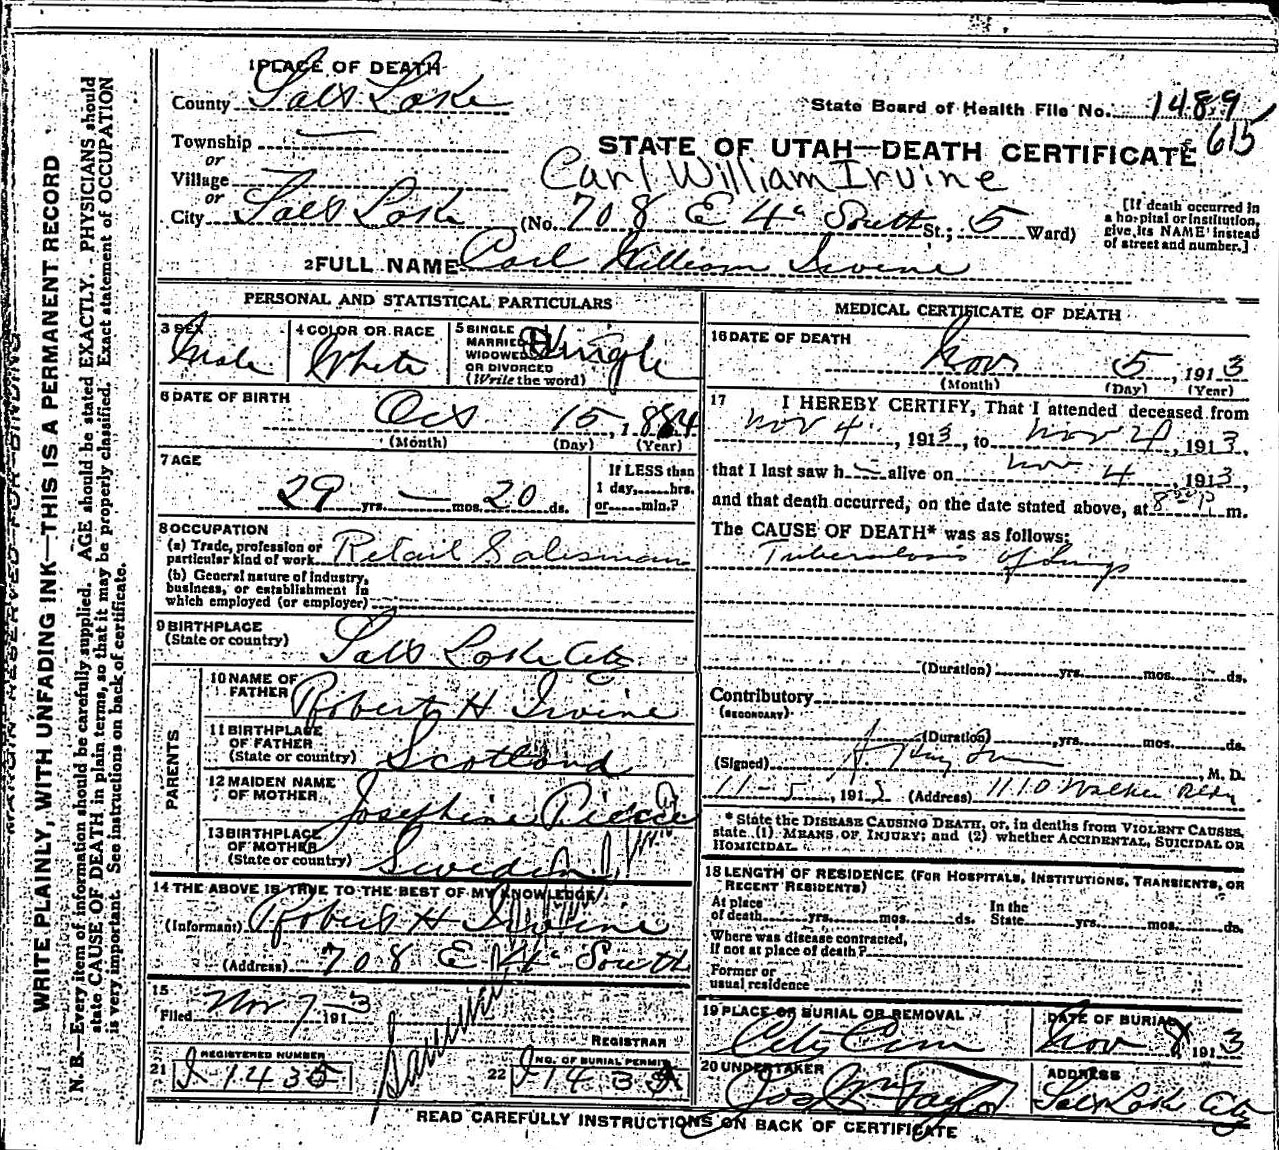 1 PLACE OF DEATH
County Salt Lake
State Board of Health File No. 1489
615
Township
or
Village
or
City Salt Lake
STATE OF UTAH—DEATH CERTIFICATE
Carl William Irvine
(No. 708 E 4" South St.; 5 Ward)
[If death occurred in
a hospital or institution,
give its NAME instead
of street and number.]
2 FULL NAME Carl William Irvine
PERSONAL AND STATISTICAL PARTICULARS
3 SEX
Male
4 COLOR OR RACE
White
5 SINGLE
MARRIED
WIDOWED
OR DIVORCED
(Write the word)
Single
6 DATE OF BIRTH
Oct 15, 1884
(Month) (Day) (Year)
7 AGE
29 yrs. — mos. 20 ds.
If LESS than
1 day, hrs.
or min.?
8 OCCUPATION
(a) Trade, profession or
particular kind of work Retail Salesman
(b) General nature of industry,
business, or establishment in
which employed (or employer)
9 BIRTHPLACE
(State or country) Salt Lake City
PARENTS
10 NAME OF
FATHER Robert H Irvine
11 BIRTHPLACE
OF FATHER
(State or country) Scotland
12 MAIDEN NAME
OF MOTHER Josephine
13 BIRTHPLACE
OF MOTHER
(State or country) Sweden
14 THE ABOVE IS TRUE TO THE BEST OF MY KNOWLEDGE
(Informant) Robert H Irvine
(Address) 708 E 4" South
15
Filed Nov 7 - 1913
REGISTRAR
21 REGISTERED NUMBER
I-1435
22 NO. OF BURIAL PERMIT
MEDICAL CERTIFICATE OF DEATH
16 DATE OF DEATH
Nov 5, 1913
(Month) (Day) (Year)
17 I HEREBY CERTIFY, That I attended deceased from
Nov 4, 1913, to Nov 4, 1913,
that I last saw h— alive on Nov 4, 1913,
and that death occurred, on the date stated above, at 8 50 P m.
The CAUSE OF DEATH* was as follows:
Tuberculosis of Lungs
(Duration) yrs. mos. ds.
Contributory
(SECONDARY)
(Duration) yrs. mos. ds.
(Signed) , M. D.
11-5, 1913 (Address) 1110 Walker Bldg
* State the DISEASE CAUSING DEATH, or, in deaths from VIOLENT CAUSES,
state (1) MEANS OF INJURY; and (2) whether ACCIDENTAL, SUICIDAL OR
HOMICIDAL.
18 LENGTH OF RESIDENCE (FOR HOSPITALS, INSTITUTIONS, TRANSIENTS, OR
RECENT RESIDENTS)
At place
of death yrs. mos. ds.
In the
State yrs. mos. ds.
Where was disease contracted,
if not at place of death?
Former or
usual residence
19 PLACE OF BURIAL OR REMOVAL
City Cem
DATE OF BURIAL
Nov 8 1913
20 UNDERTAKER
Jos Wm Taylor
ADDRESS
Salt Lake City
READ CAREFULLY INSTRUCTIONS ON BACK OF CERTIFICATE
MARGIN RESERVED FOR BINDING
WRITE PLAINLY, WITH UNFADING INK—THIS IS A PERMANENT RECORD
N. B.—Every item of information should be carefully supplied. AGE should be stated EXACTLY. PHYSICIANS should
state CAUSE OF DEATH in plain terms, so that it may be properly classified. Exact statement of OCCUPATION
is very important. See instructions on back of certificate.